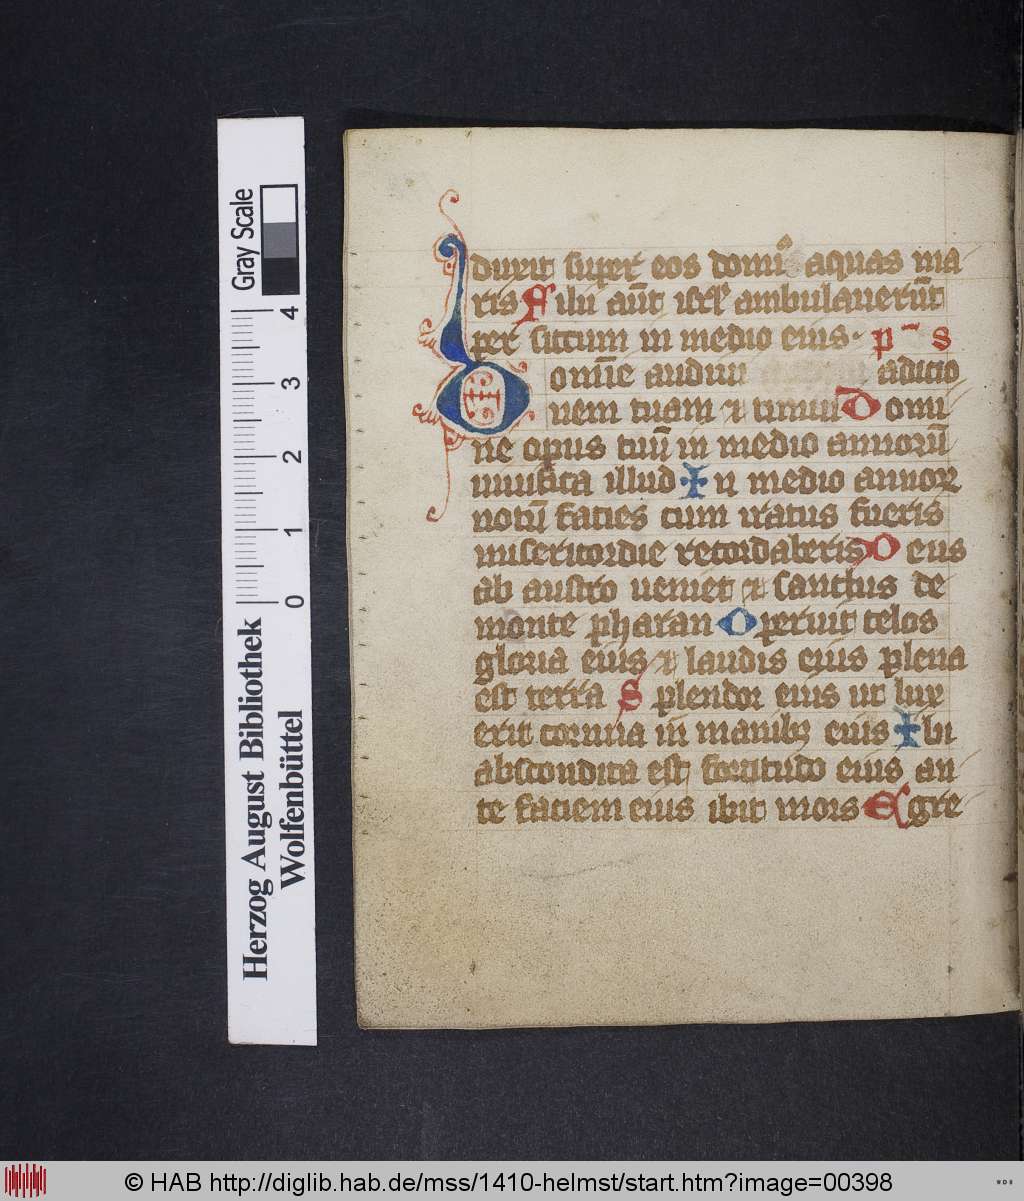 Gray Scale
4
3
2
1
0
Herzog August Bibliothek
Wolfenbüttel
duxit super eos domin9 aquas ma
ris Filii aūt isrl' ambulauerūt
per siccum in medio eius. p s
Domine audiui audic̄io
nem tuam ⁊ timui Domi
ne opus tuū in medio annorū
uiuifica illud In medio annoꝝ
notū facies cum iratus fueris
misericordie recordaberis Deus
ab austro ueniet ⁊ sanctus de
monte pharan Operuit celos
gloria eius ⁊ laudis eius plena
est terra Splendor eius ut lux
erit cornua in manibꝫ eius Ibi
abscondita est fortitudo eius an
te faciem eius ibit mors Egre
© HAB http://diglib.hab.de/mss/1410-helmst/start.htm?image=00398